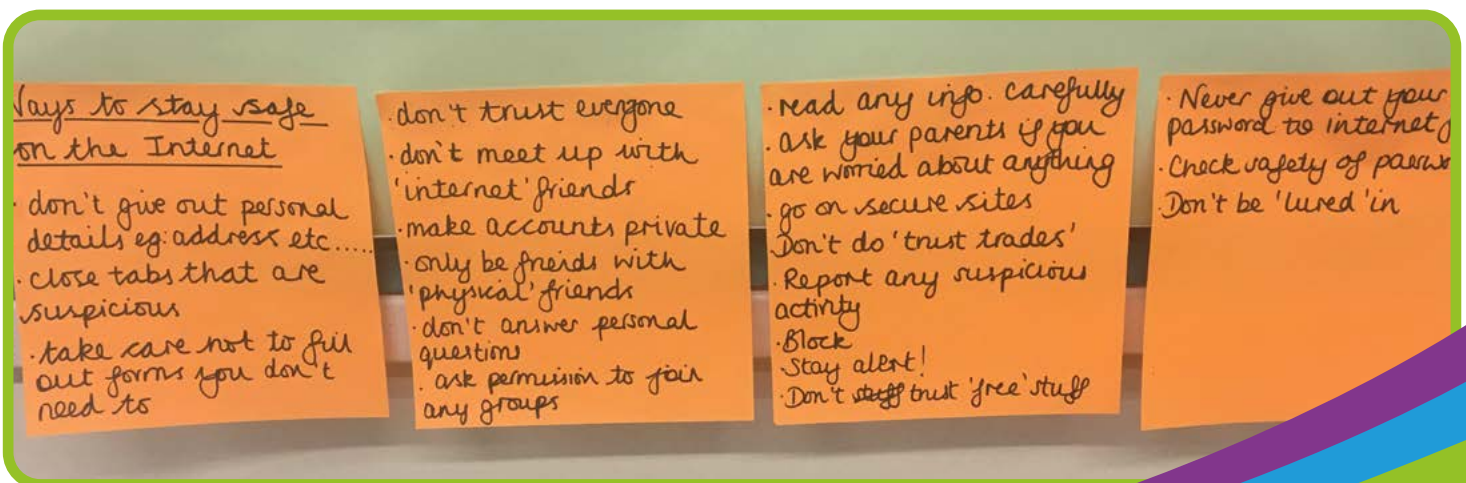 Ways to stay safe
on the Internet
· don't give out personal
details eg: address etc.....
· close tabs that are
suspicious
· take care not to fill
out forms you don't
need to
· don't trust everyone
· don't meet up with
'internet' friends
· make accounts private
· only be freids with
'physical' friends
· don't answer personal
questions
· ask permission to join
any groups
· read any info. carefully
· ask your parents if you
are worried about anything
· go on secure sites
· Don't do 'trust trades'
· Report any suspicious
activity
· Block
· Stay alert!
· Don't stuff trust 'free' stuff
· Never give out your
password to internet
· Check safety of
· Don't be 'lured' in